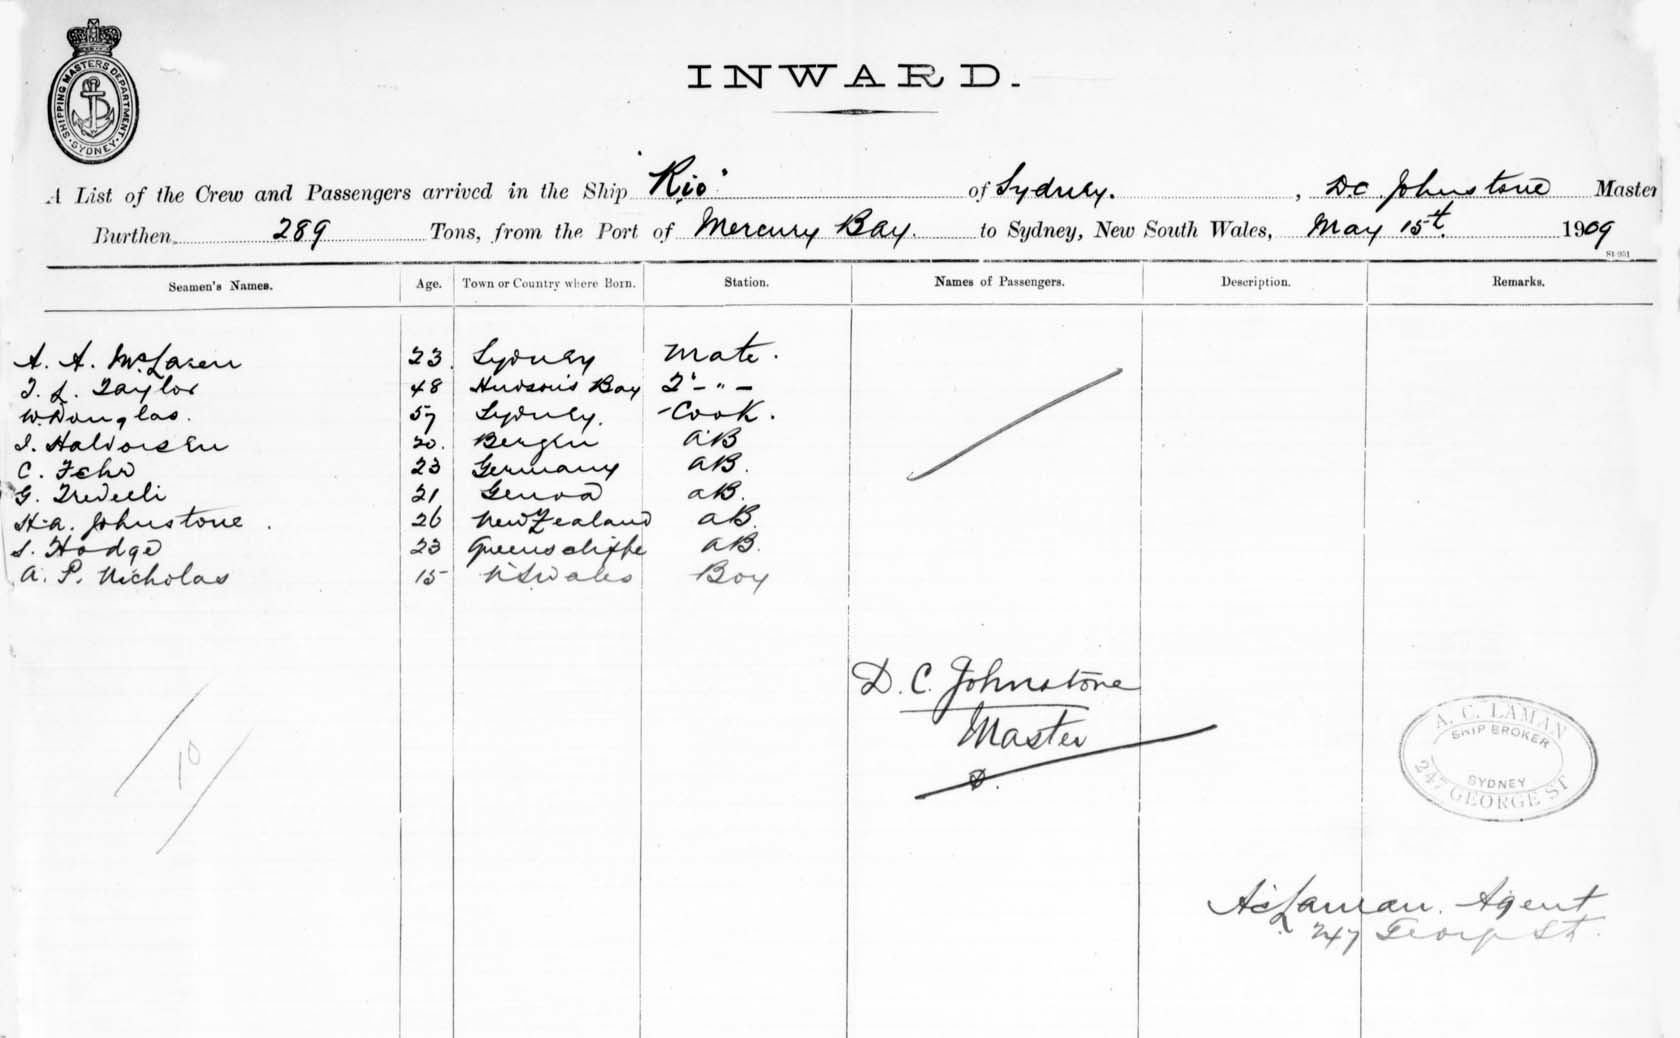 SHIPPING MASTERS DEPARTMENT
SYDNEY
INWARD.
A List of the Crew and Passengers arrived in the Ship "Rio" of Sydney. , D.C. Johnstone Master
Burthen 289 Tons, from the Port of Mercury Bay. to Sydney, New South Wales, May 15th. 1909
Seamen's Names. Age. Town or Country where Born. Station. Names of Passengers. Description. Remarks.
A. A. McLaren 23. Sydney Mate.
T. L. Taylor 48 Hudson's Bay 2' - " -
W. Douglas. 57 Sydney. Cook.
I. Halvorsen 20. Bergen AB
C. Fehr 23 Germany AB.
G. 21 Genoa AB.
H. A. Johnstone. 26 New Zealand AB.
S. Hodge 23 Queenscliffe AB.
A. P. Nicholas 15 N S Wales Boy
D. C. Johnstone
Master
10
A. C. LAMAN
SHIP BROKER
SYDNEY
247 GEORGE ST
A C Laman. Agent
247 George St.